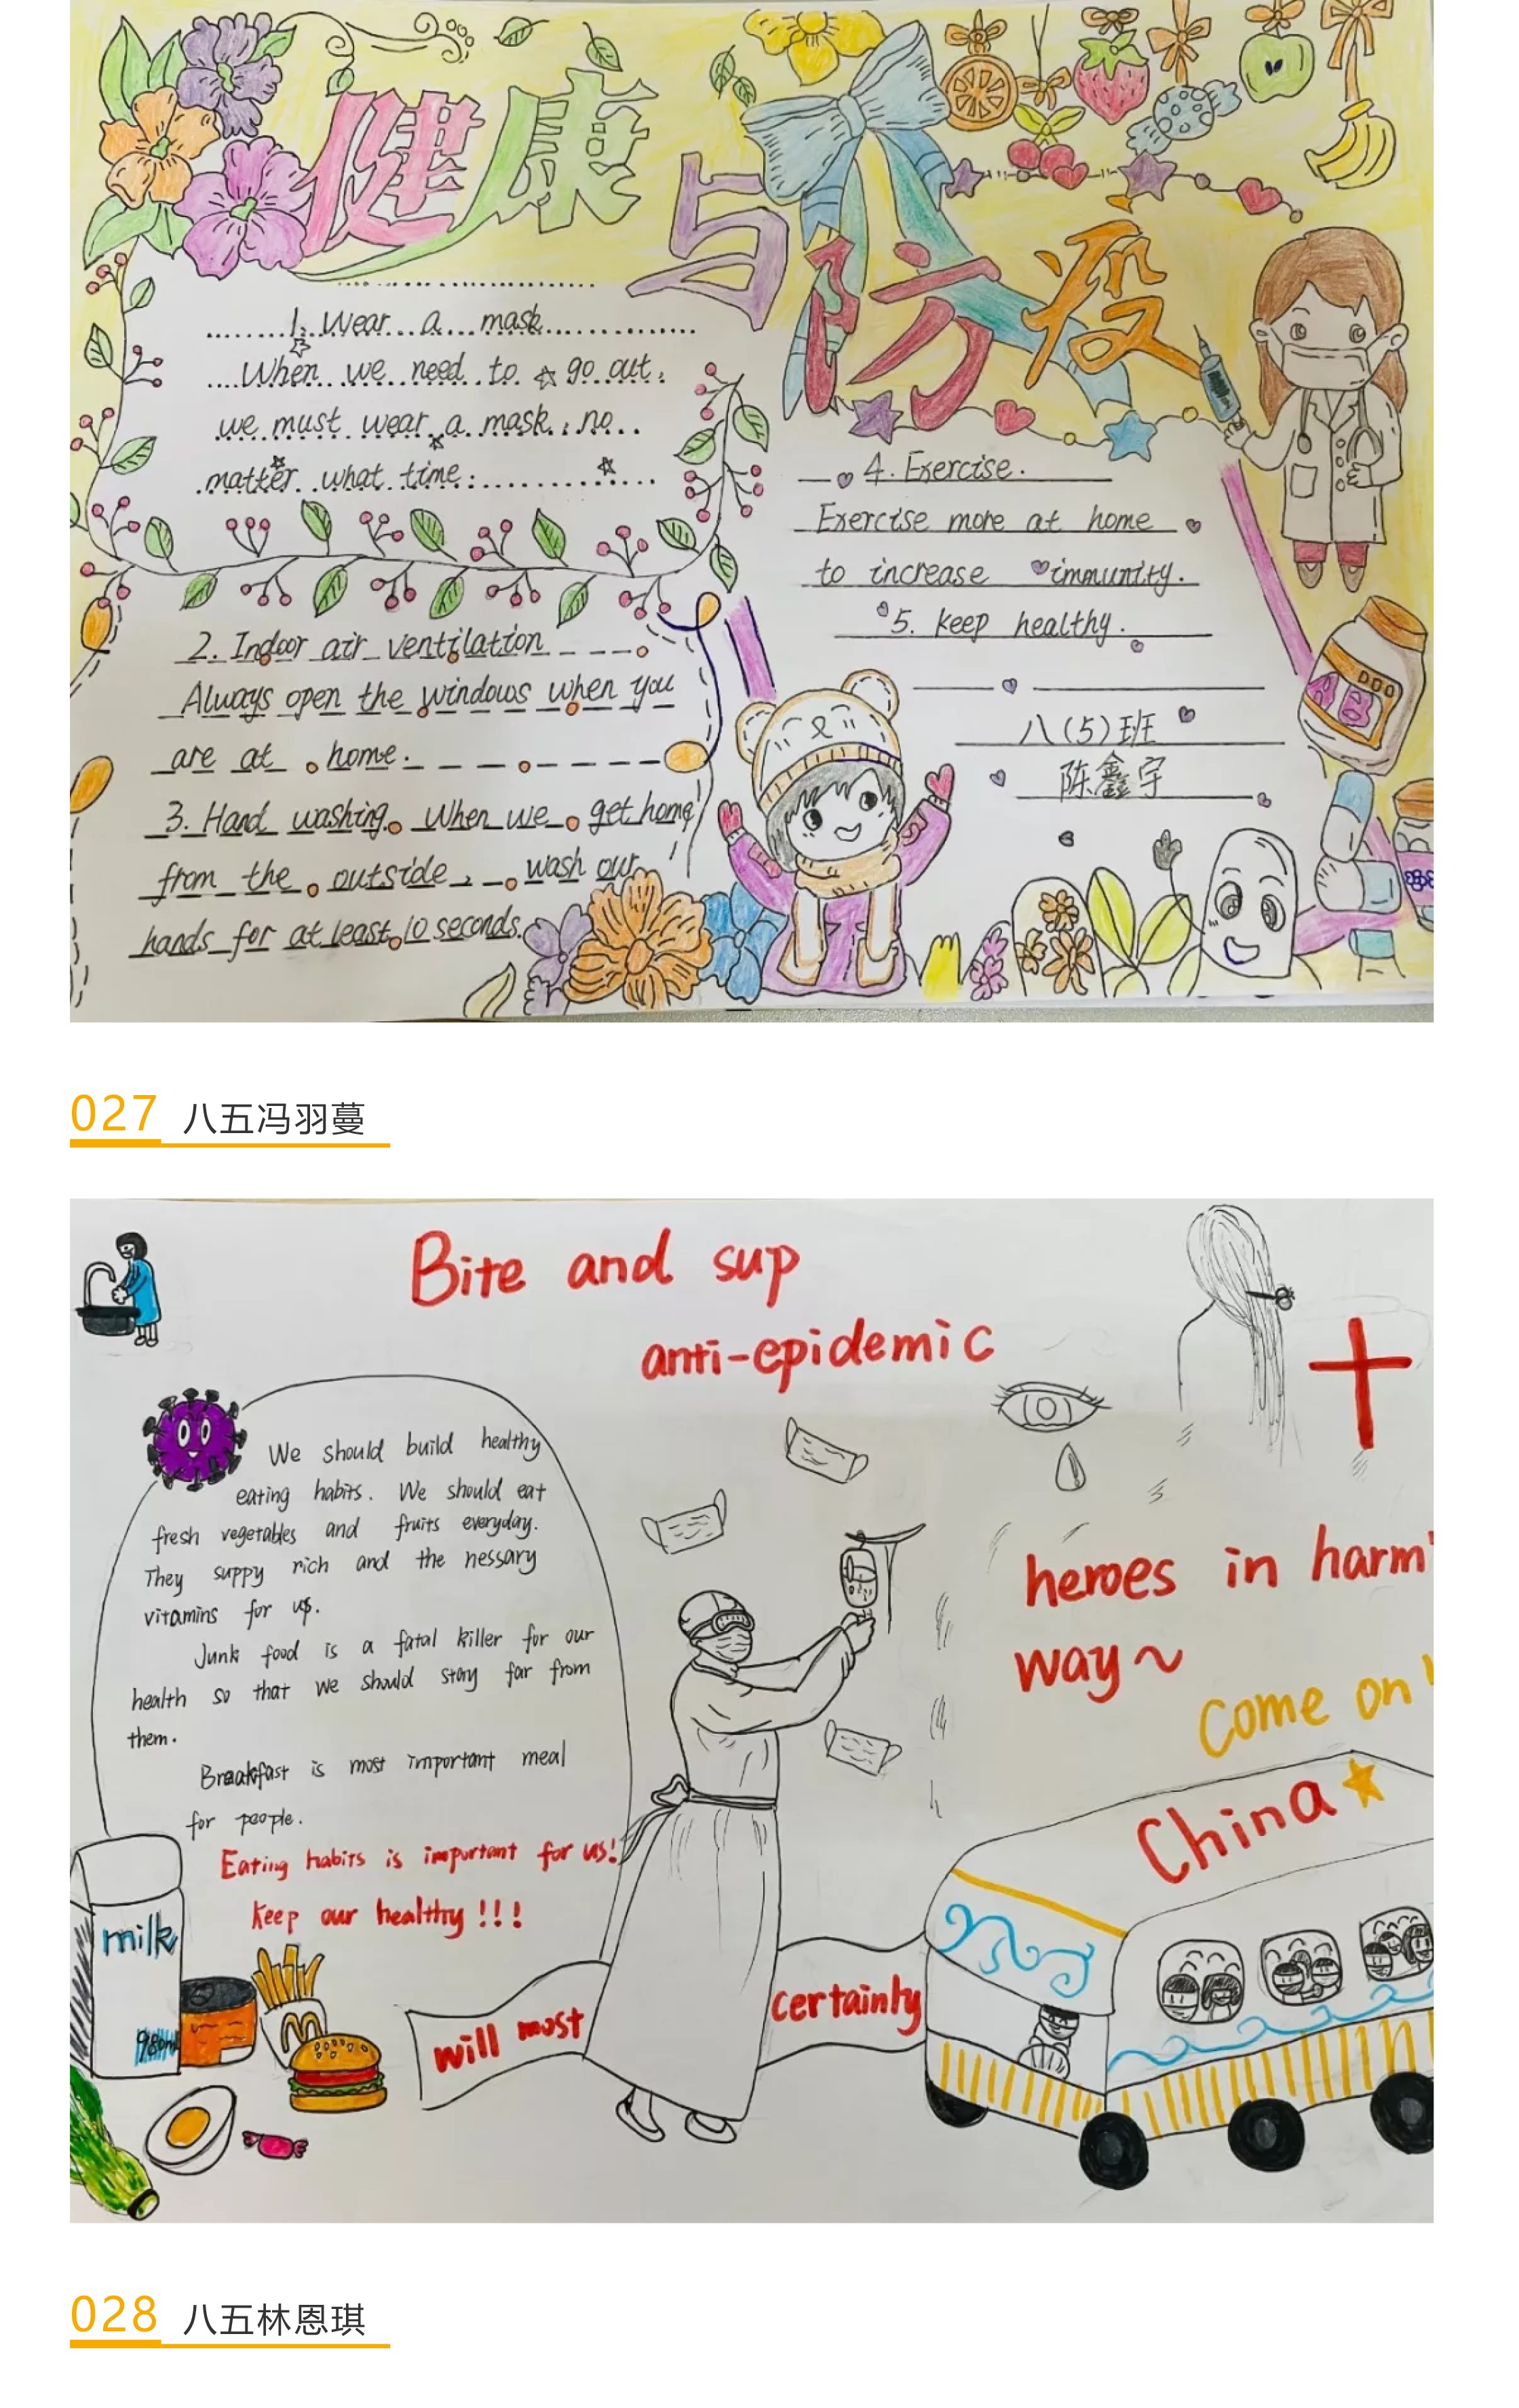 健康与防疫
1. Wear a mask
When we need to go out,
we must wear a mask, no
matter what time.
2. Indoor air ventilation
Always open the windows when you
are at home.
3. Hand washing. When we get home
from the outside, wash our
hands for at least 10 seconds.
4. Exercise.
Exercise more at home
to increase immunity.
5. keep healthy.
八(5)班
陈鑫宇
027 八五冯羽蔓
Bite and sup
anti-epidemic
We should build healthy
eating habits. We should eat
fresh vegetables and fruits everyday.
They suppy rich and the nessary
vitamins for us.
Junk food is a fatal killer for our
health so that we should stay far from
them.
Breakfast is most important meal
for people.
Eating habits is important for us!
Keep our healthy!!!
milk
980ml
heroes in harm'
way~
Come on!
China
will most
certainly
028 八五林恩琪